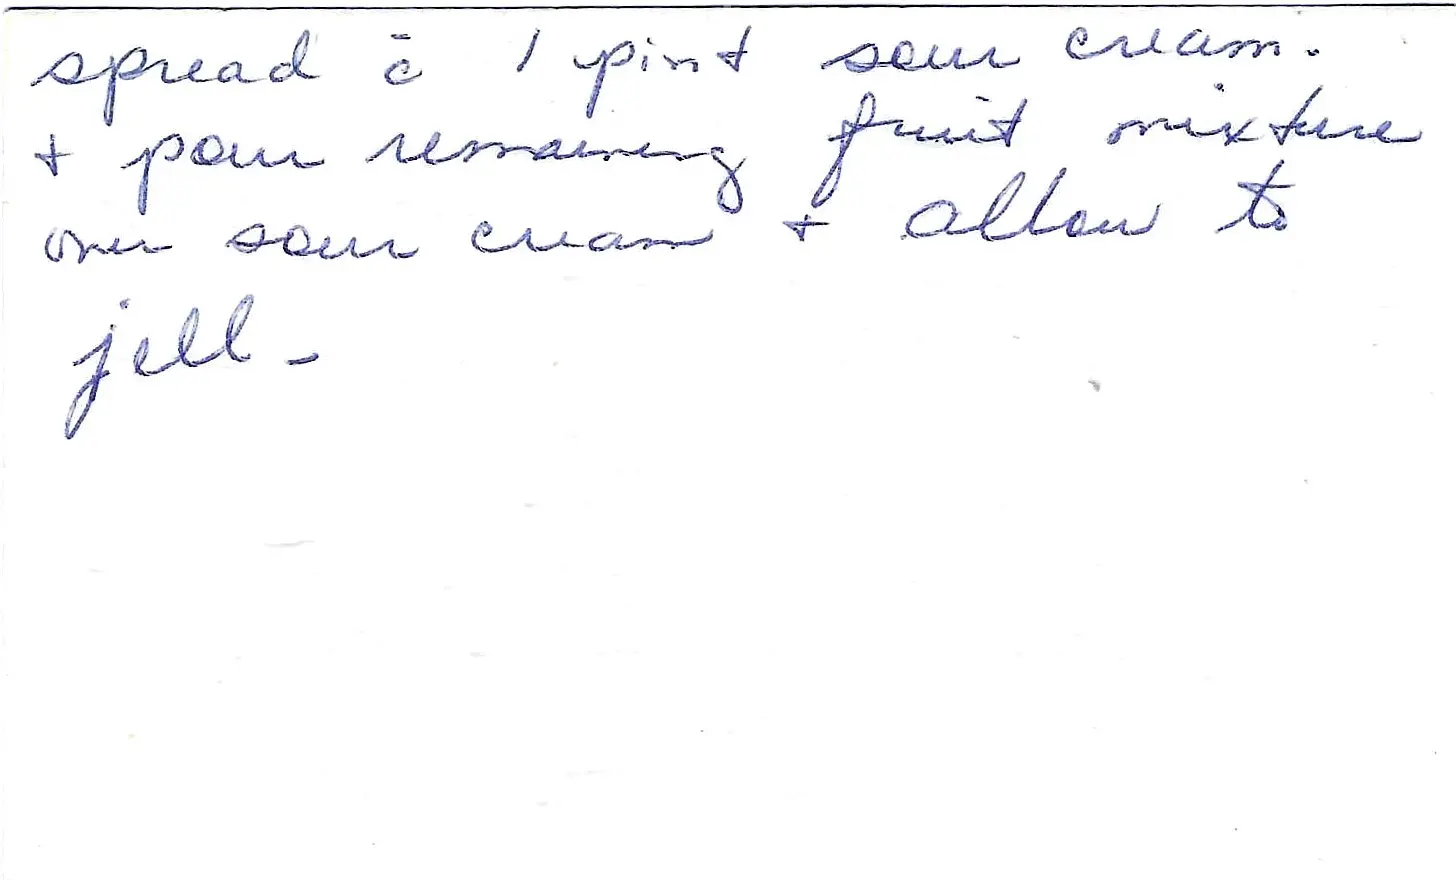 spread c̄ 1 pint sour cream.
+ pour remaining fruit mixture
over sour cream + allow to
jell -